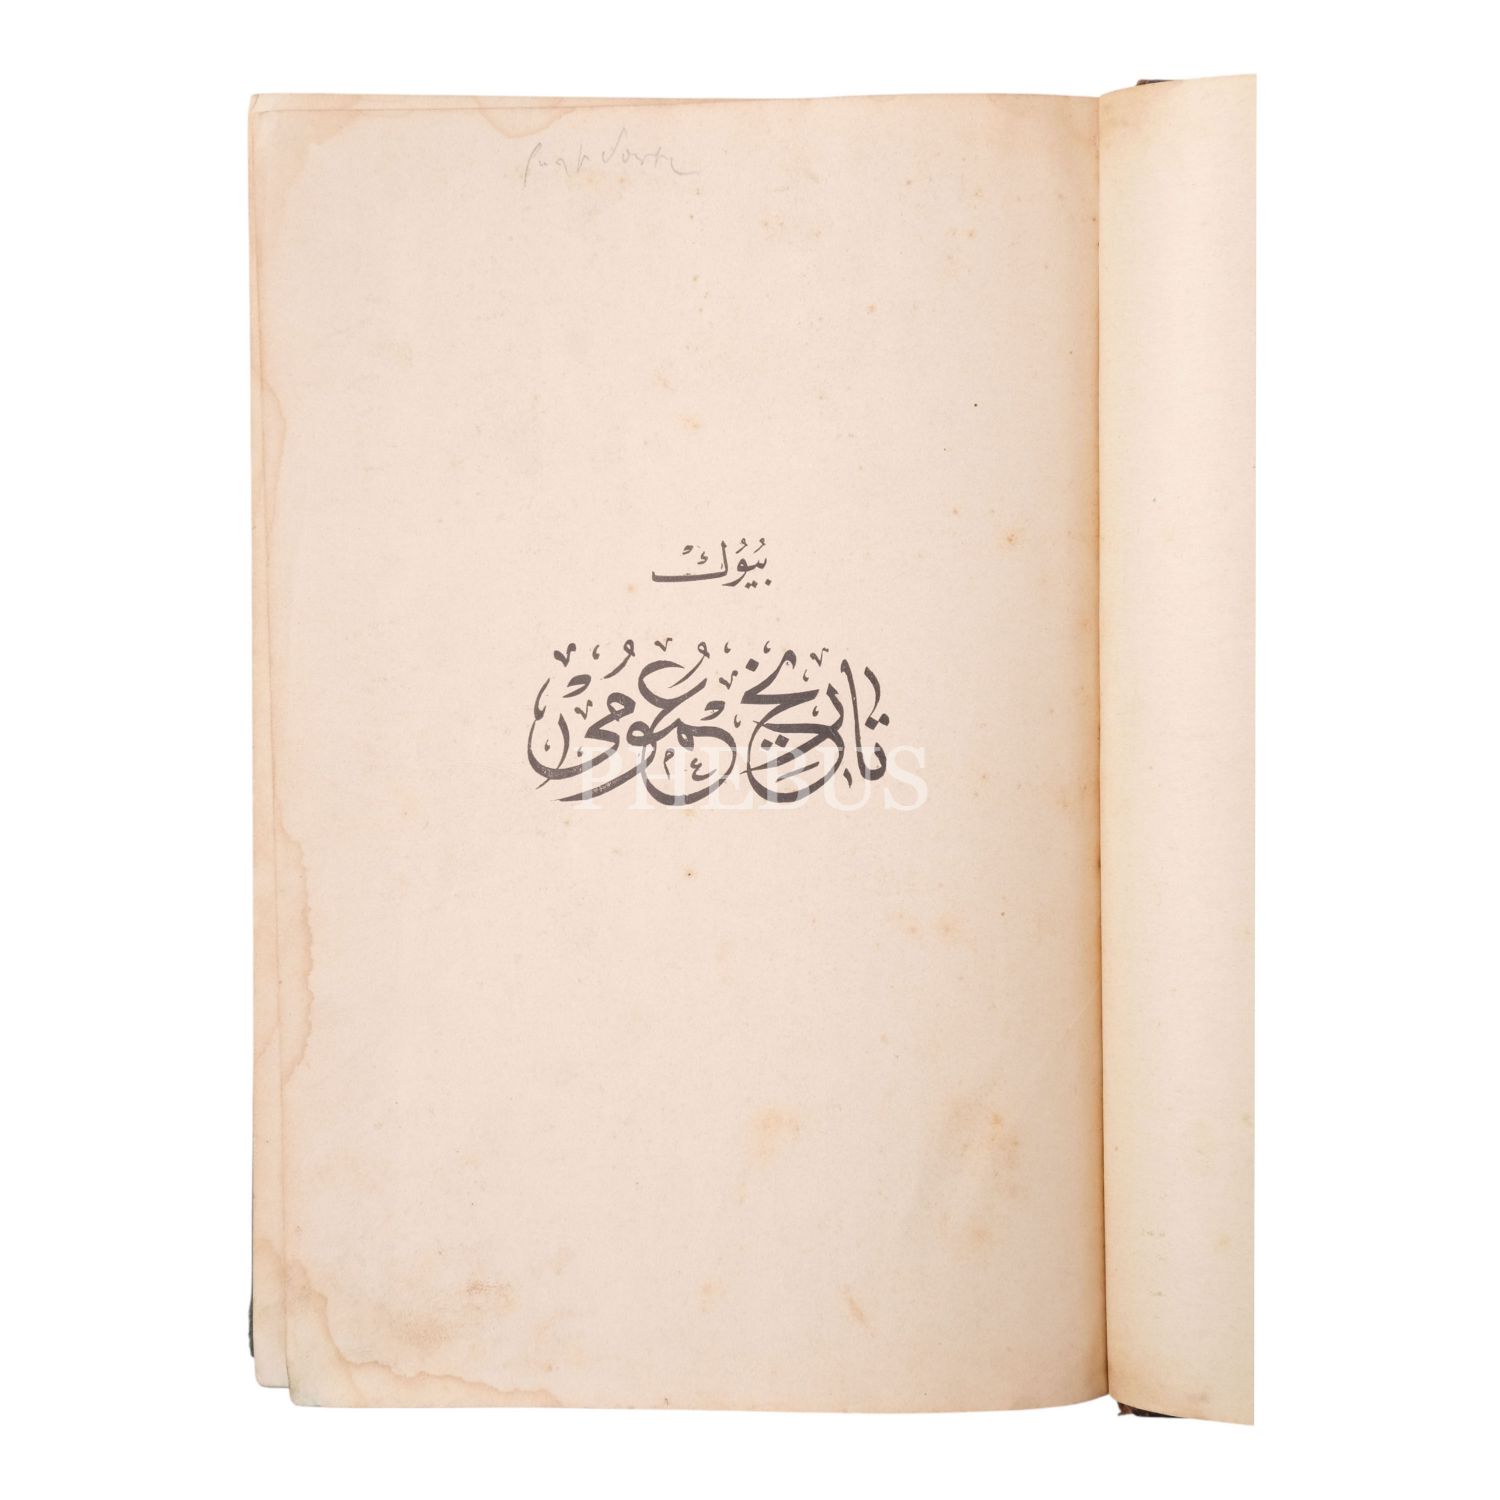 بُيُوك
تاريخ عُمُومى
PHEBUS